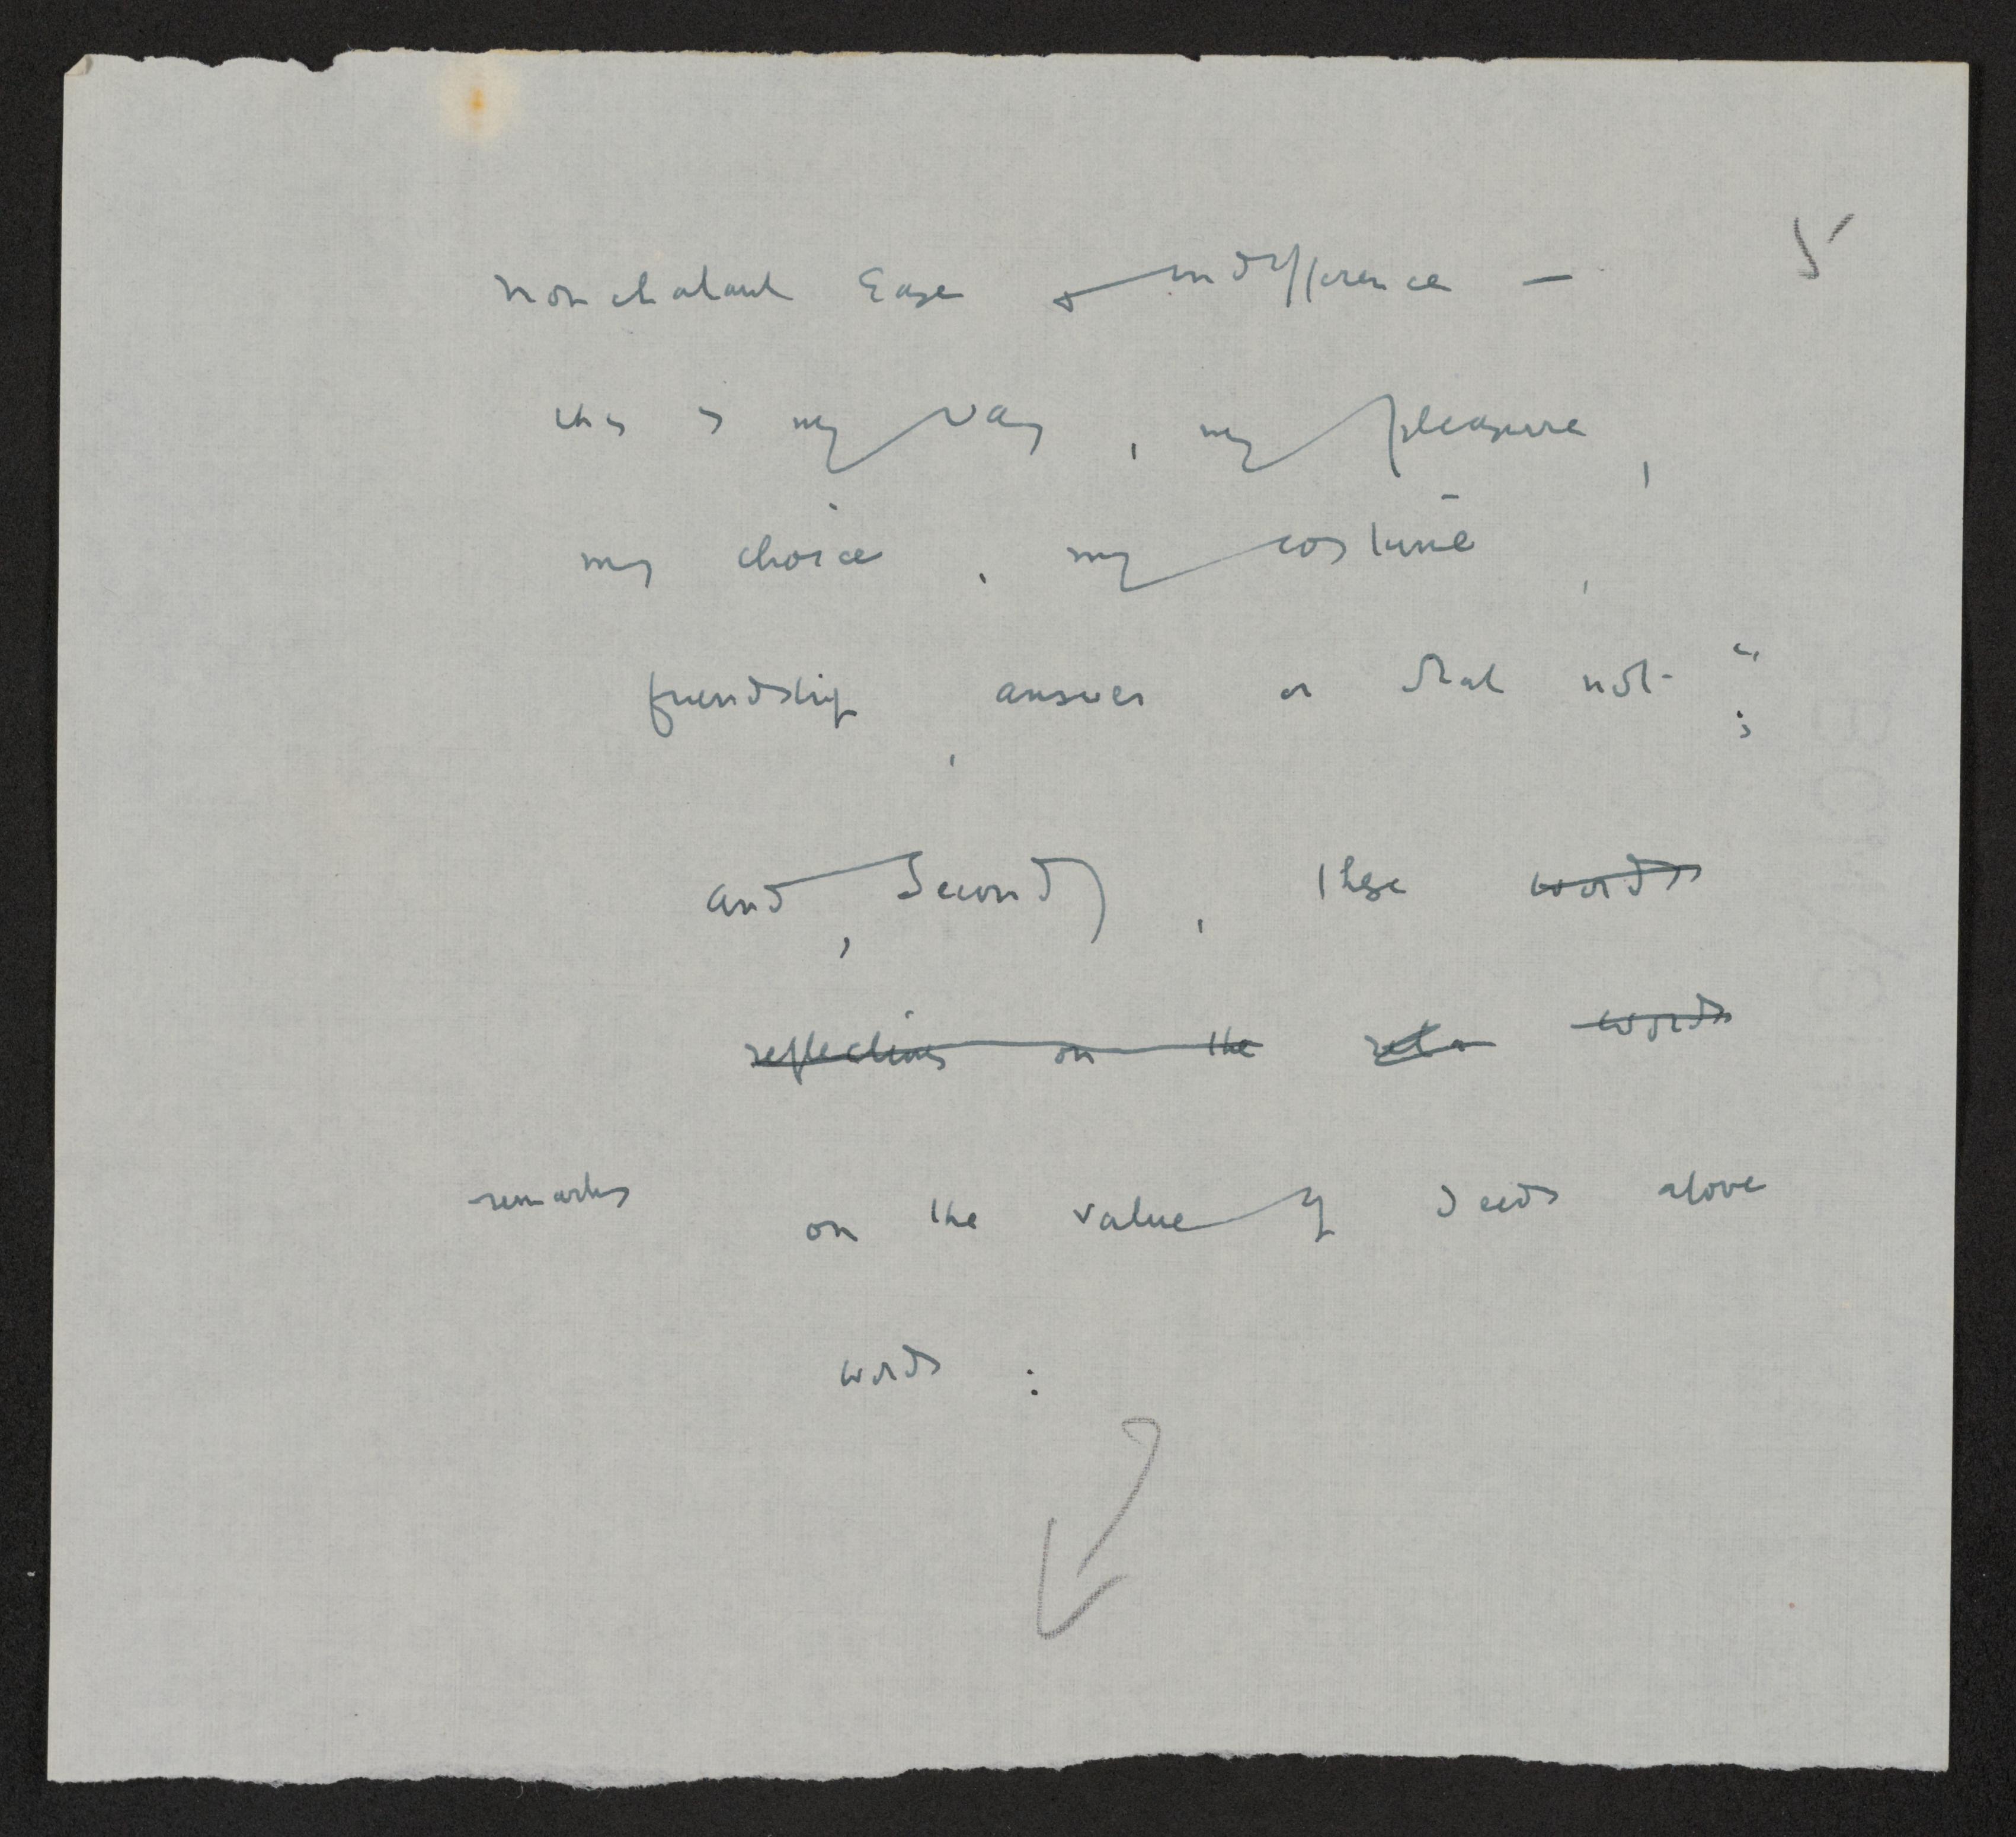 5
nonchalant Ease & indifference —
this is my way, my pleasure,
my choice, my costume,
friendship, answer or what not";
and, secondly, these words
reflections on the words
remarks on the value of deeds above
words :